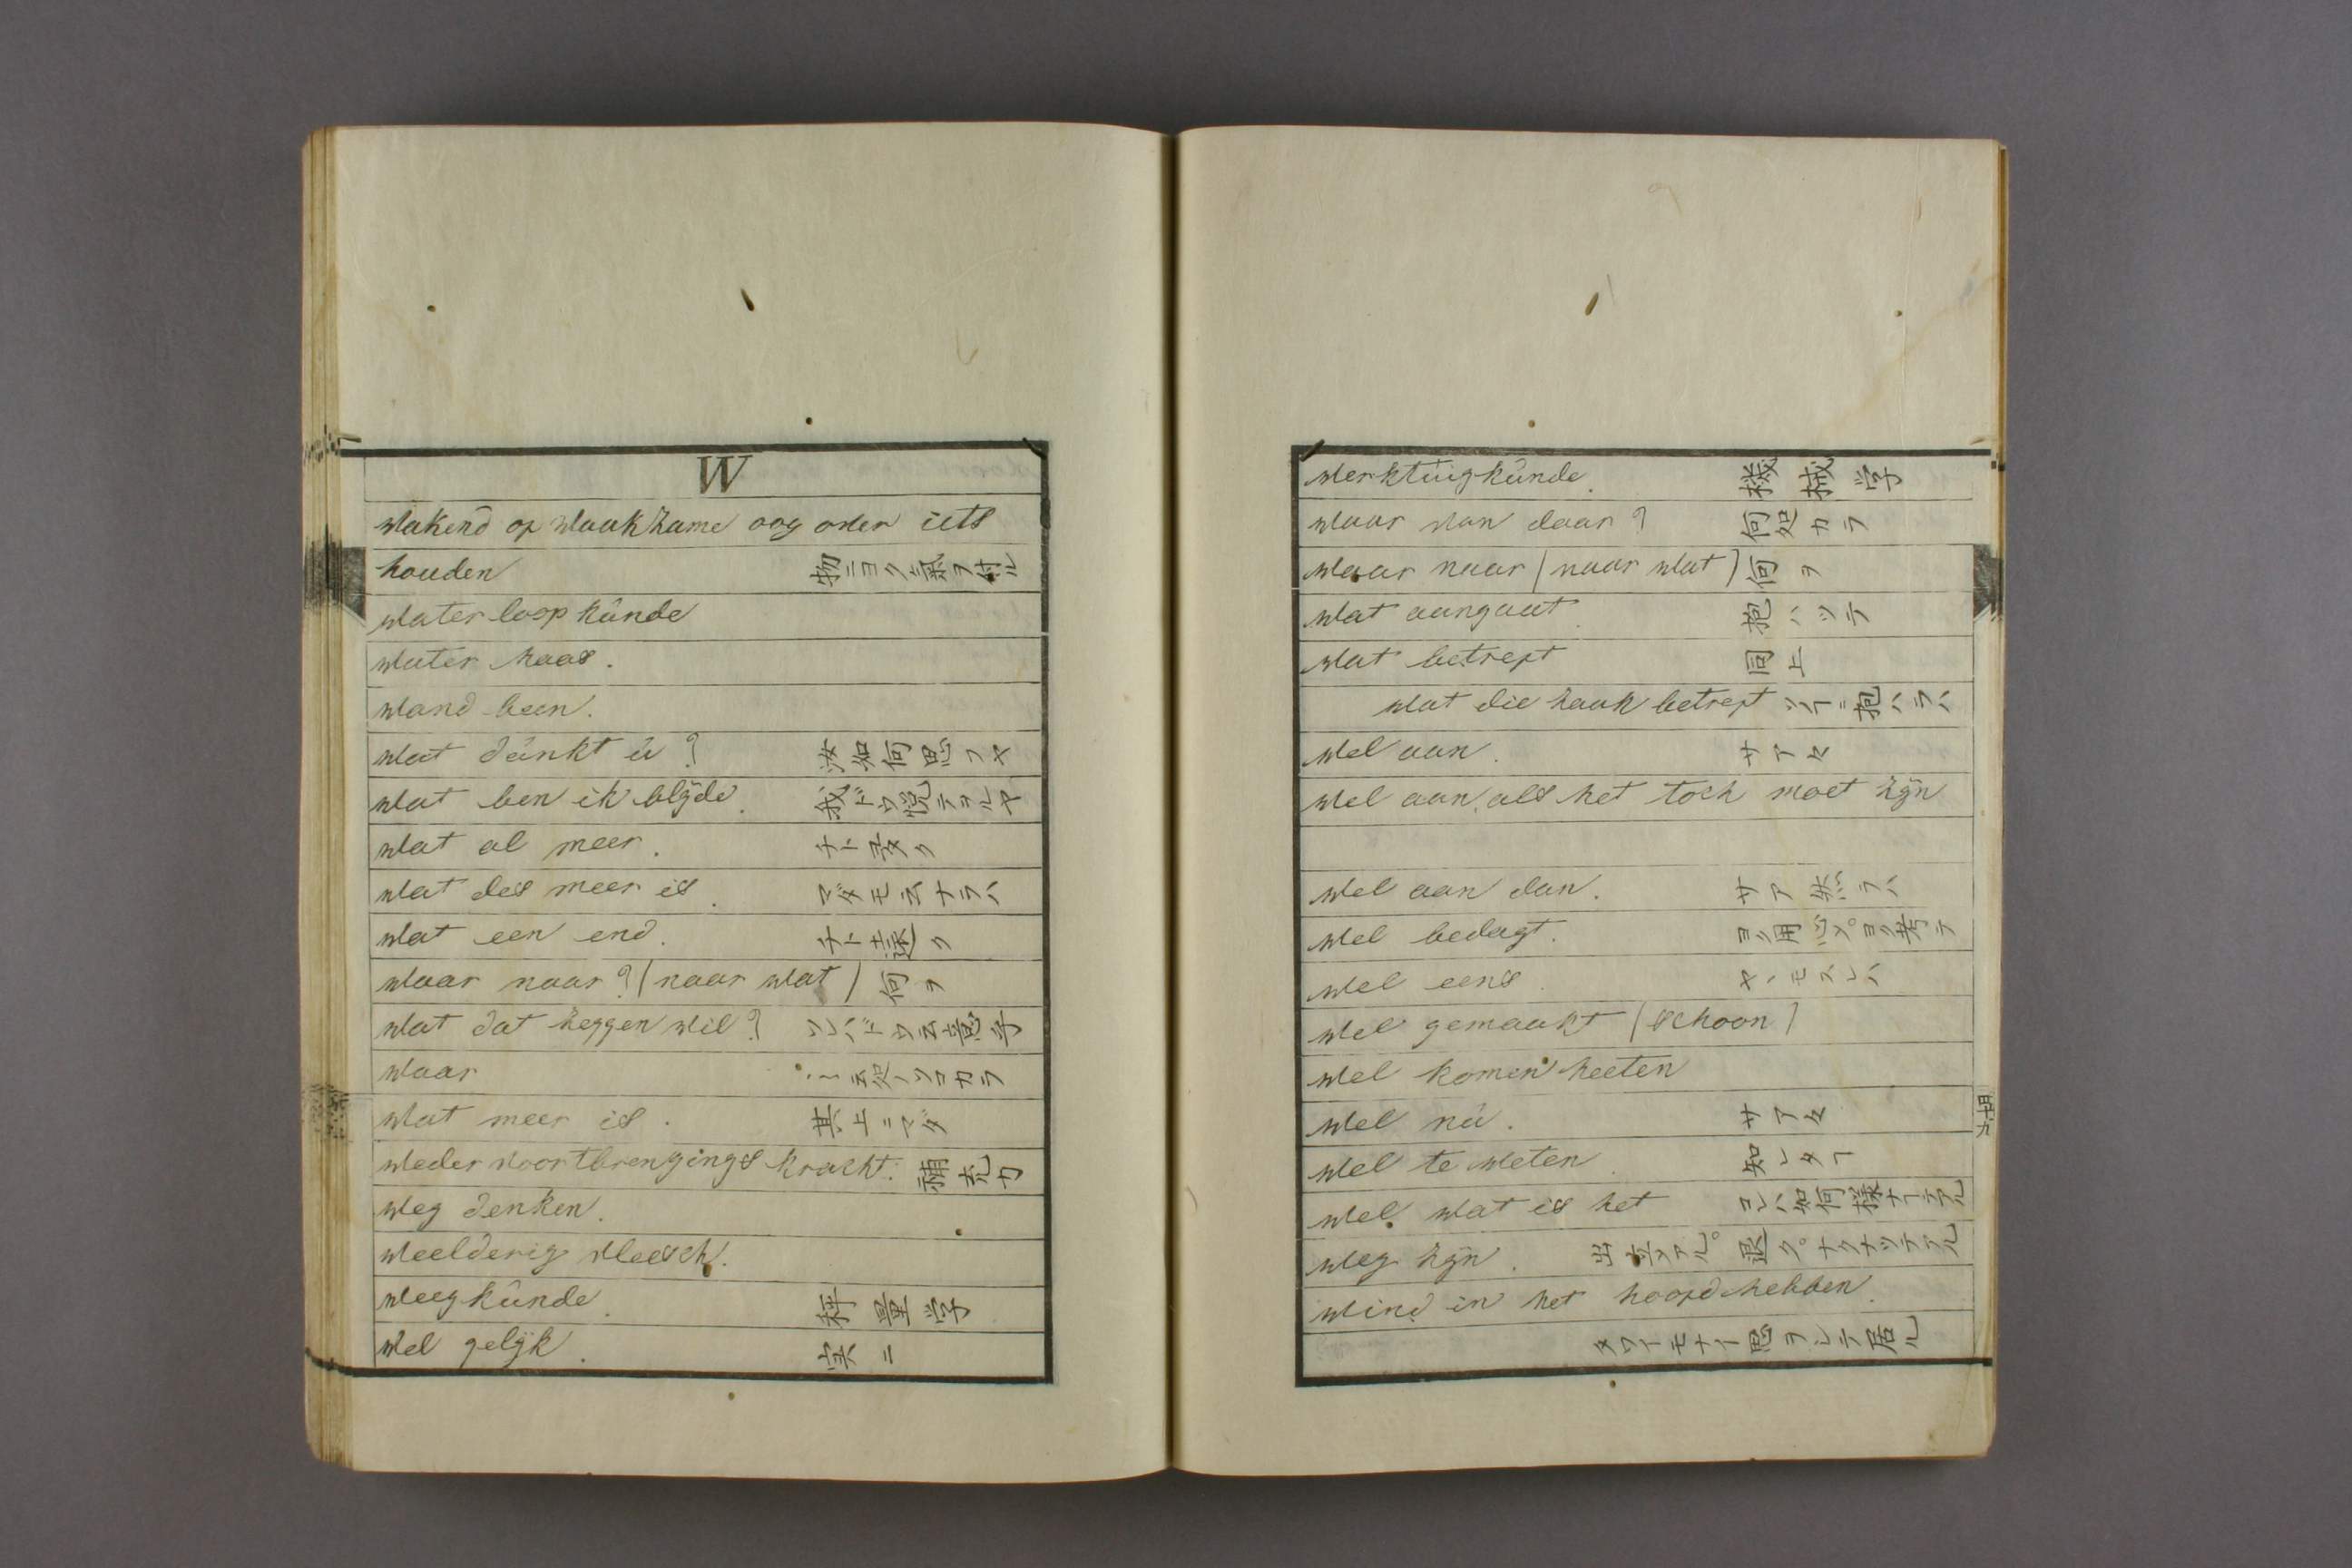 W
wakend of waakzame oog over iets
houden 物ニヨク氣ヲ付ル
waterloopkûnde
water haas.
wand been.
wat dûnkt û? 汝如何思フヤ
wat ben ik blÿde. 我ドウ悦テヲルヤ
wat al meer. チト多ク
wat des meer is. マダモ云ナラハ
wat een end. チト遠ク
waar naar? (naar wat) 何ヲ
wat dat zeggen wil? ソレハドウ云意乎
waar
wat meer is. 其上ニマダ
weder voortbrengings kracht. 補充力
weg denken.
weelderig vleesch.
weegkûnde. 秤量学
wel gelÿk. 実ニ
werktûigkûnde. 機械学
waar van daar? 何処カラ
waar naar (naar wat) 何ヲ
wat aangaat. 抱ハツテ
wat betreft 同上
wat die zaak betreft
wel aan. サア々
wel aan, als het toch moet zÿn
wel aan dan. サア然ラハ
wel bedagt. ヨク用心シ。ヨク考テ
wel eens.
wel gemaakt (schoon)
wel komen heeten
wel nû. サア々
wel te weten. 知レタヿ
wel wat is het コレハ如何様ナヿデアル
weg zÿn. 出立シテアル。退ク。ナクナツテアル
wind in het hoofd hebben.
タワイモナイ思ヲシテ居ル